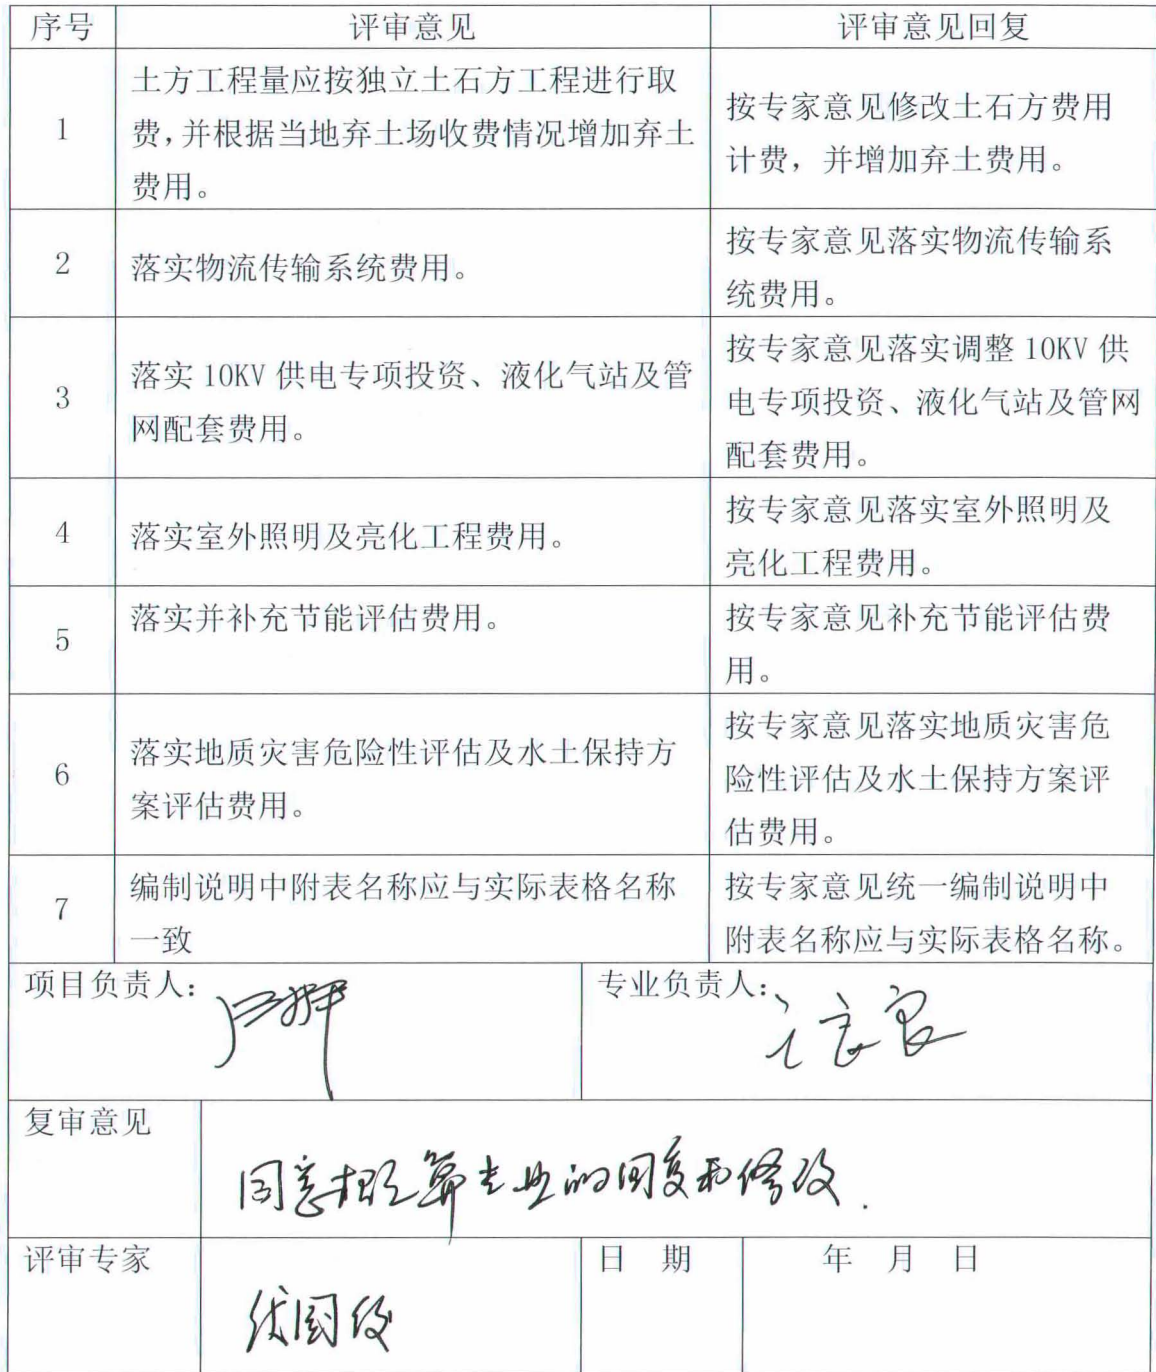 序号 评审意见 评审意见回复
1
土方工程量应按独立土石方工程进行取
费,并根据当地弃土场收费情况增加弃土
费用。
按专家意见修改土石方费用
计费，并增加弃土费用。
2
落实物流传输系统费用。
按专家意见落实物流传输系
统费用。
3
落实 10KV 供电专项投资、液化气站及管
网配套费用。
按专家意见落实调整 10KV 供
电专项投资、液化气站及管网
配套费用。
4
落实室外照明及亮化工程费用。
按专家意见落实室外照明及
亮化工程费用。
5
落实并补充节能评估费用。
按专家意见补充节能评估费
用。
6
落实地质灾害危险性评估及水土保持方
案评估费用。
按专家意见落实地质灾害危
险性评估及水土保持方案评
估费用。
7
编制说明中附表名称应与实际表格名称
一致
按专家意见统一编制说明中
附表名称应与实际表格名称。
项目负责人:
专业负责人:
复审意见
同意概算专业的回复和修改.
评审专家
日 期 年 月 日